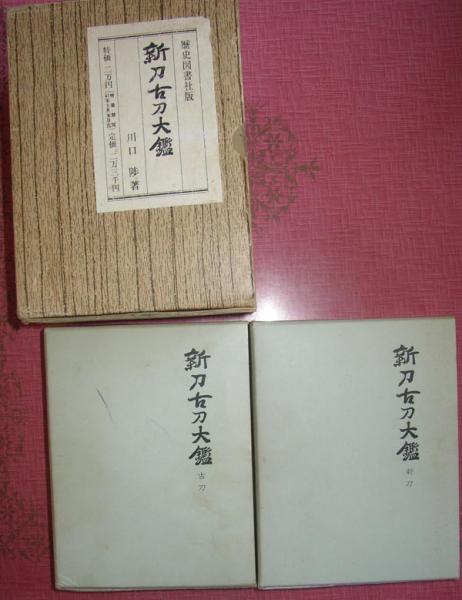 歴史図書社版
新刀古刀大鑑
川口 陟著
特価 二万円
定価二万三千円
新刀古刀大鑑
古刀
新刀古刀大鑑
新刀